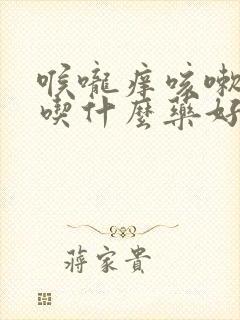 喉嚨痒咳嗽
喫什麼藥好
蔣家貴